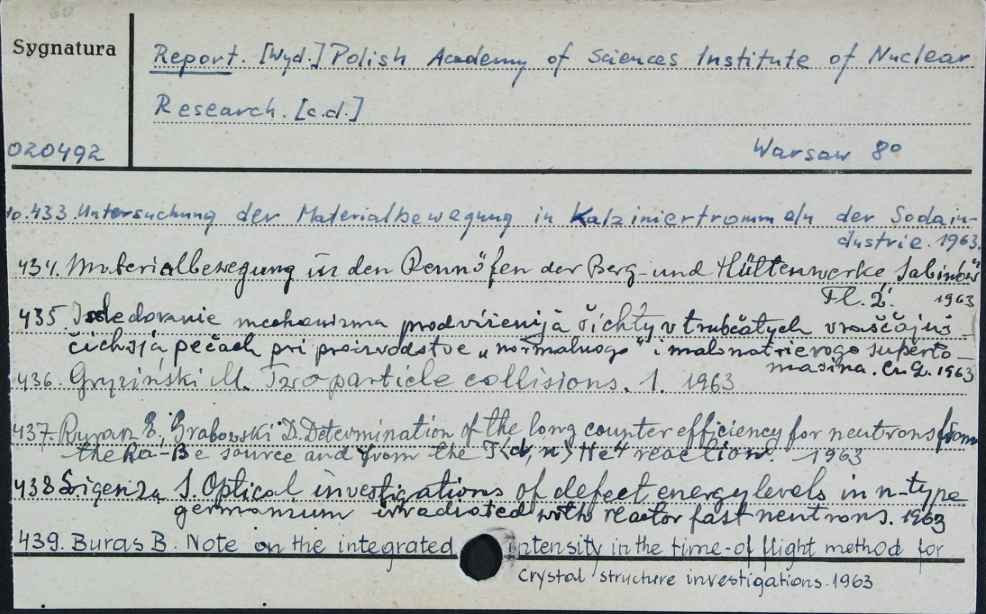 Sygnatura
Report. [Wyd.] Polish Academy of Sciences Institute of Nuclear
Research. [c.d.]
020492
Warsaw 8°
No. 433. Untersuchung der Materialbewegung in Kalziniertrommeln der Sodain-
dustrie. 1963.
434. Materialbewegung in den Rennöfen der Berg- und Hüttenwerke "Sabinów"
1963
435. Issledovanie mechanizma prodviženija šichty v trubčatych vraščajuš-
čichsja pečach pri proizvodstve „normalnogo" i malonatrievogo superto-
masina. Cz. 2. 1963
436. Gryziński M. Two particle collisions. 1. 1963
437. Ruran E., Grabowski D. Determination of the long counter efficiency for neutrons from
the Ra-Be source and from the T(d,n)He4 reaction. 1963
438 J. Optical investigations of defect energy levels in n-type
germanium irradiated with reactor fast neutrons. 1963
439. Buras B. Note on the integrated intensity in the time-of flight method for
crystal structure investigations. 1963